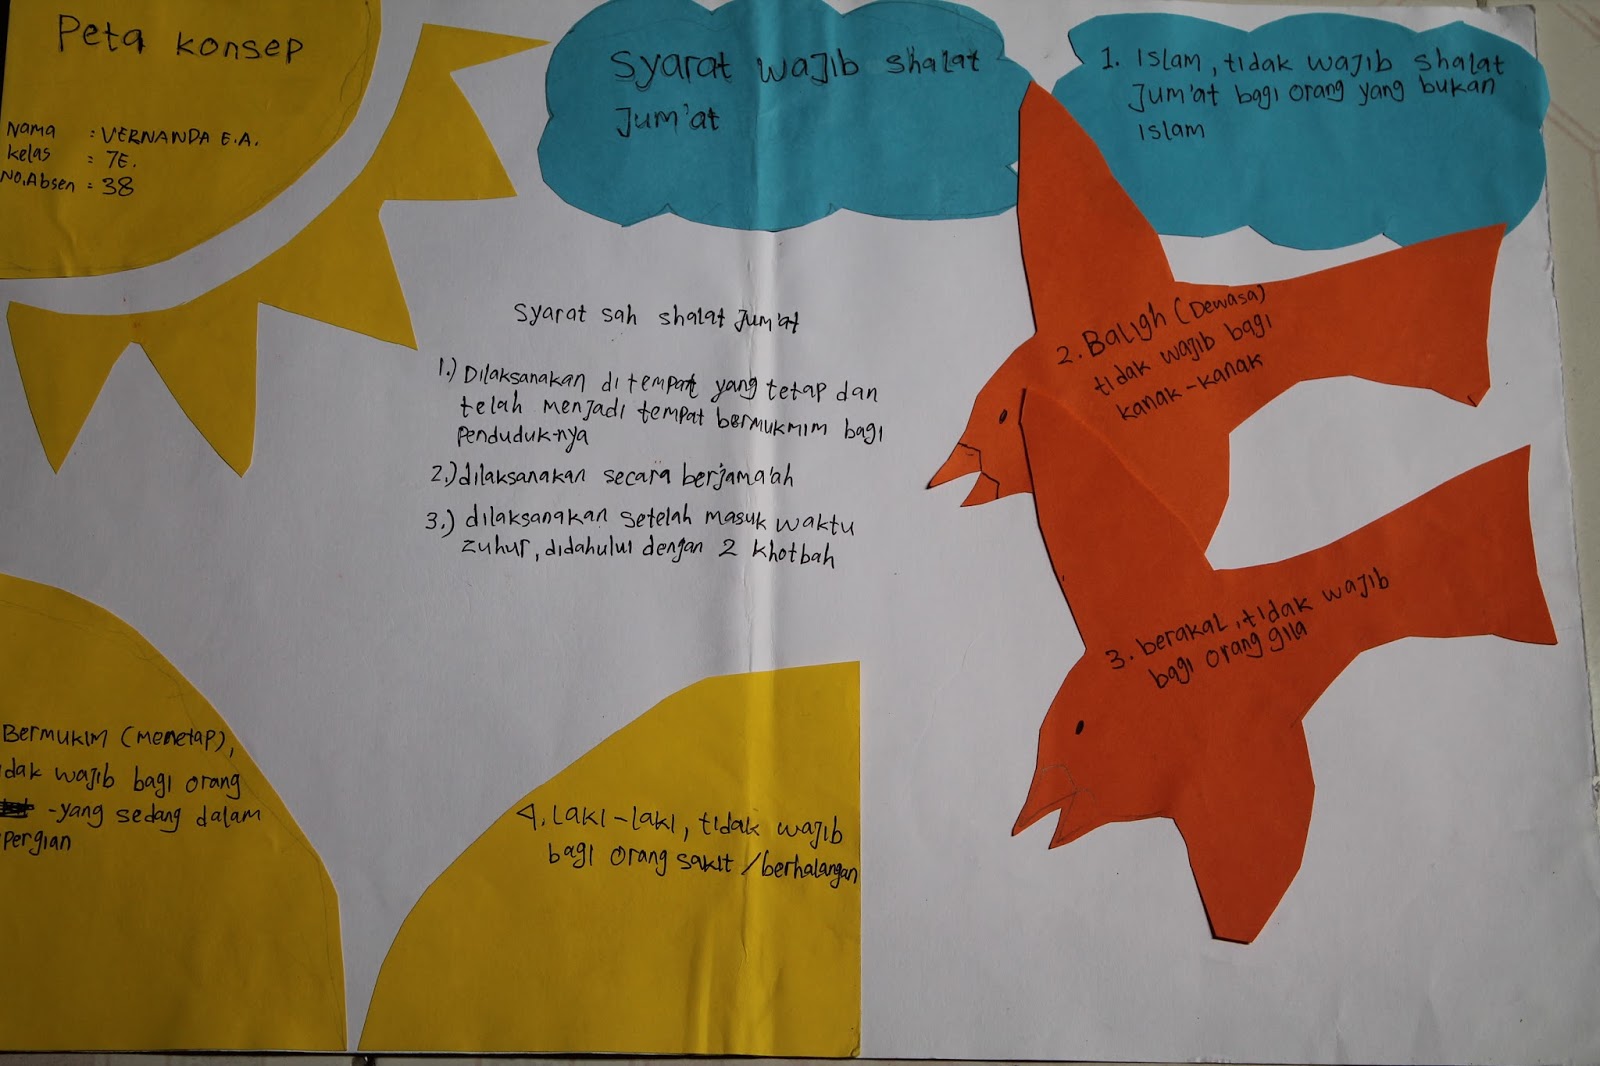 Peta konsep
Nama : VERNANDA E.A.
Kelas : 7E.
No.Absen : 38
Syarat wajib shalat
Jum'at
1. Islam, tidak wajib shalat
Jum'at bagi orang yang bukan
Islam
2. Baligh (Dewasa)
tidak wajib bagi
kanak-kanak
3. berakal, tidak wajib
bagi orang gila
4. Laki-laki, tidak wajib
bagi orang sakit /berhalangan
Bermukim (menetap),
dak wajib bagi orang
-yang sedang dalam
pergian
Syarat sah shalat Jum'at
1.) Dilaksanakan di tempat yang tetap dan
telah menjadi tempat bermukmim bagi
penduduk-nya
2.) dilaksanakan secara berjama'ah
3.) dilaksanakan setelah masuk waktu
zuhur, didahului dengan 2 khotbah